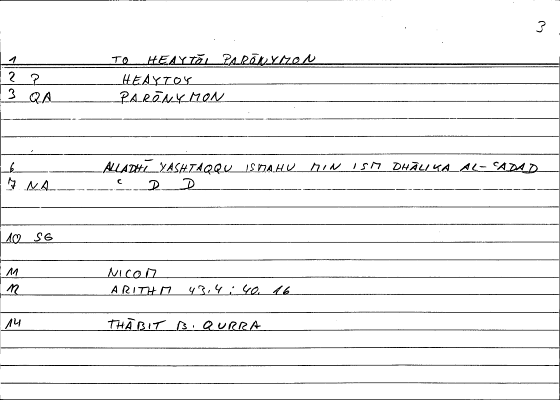 3
1 TO HEAYTŌI PARŌNYMON
2 P HEAYTOY
3 QA PARŌNYMON
6 ALLADHĪ YASHTAQQU ISMAHU MIN ISM DHĀLIKA AL-ʿADAD
7 NA ʿ D D
10 SG
11 NICOM
12 ARITHM 43.4 : 40.16
14 THĀBIT B. QURRA